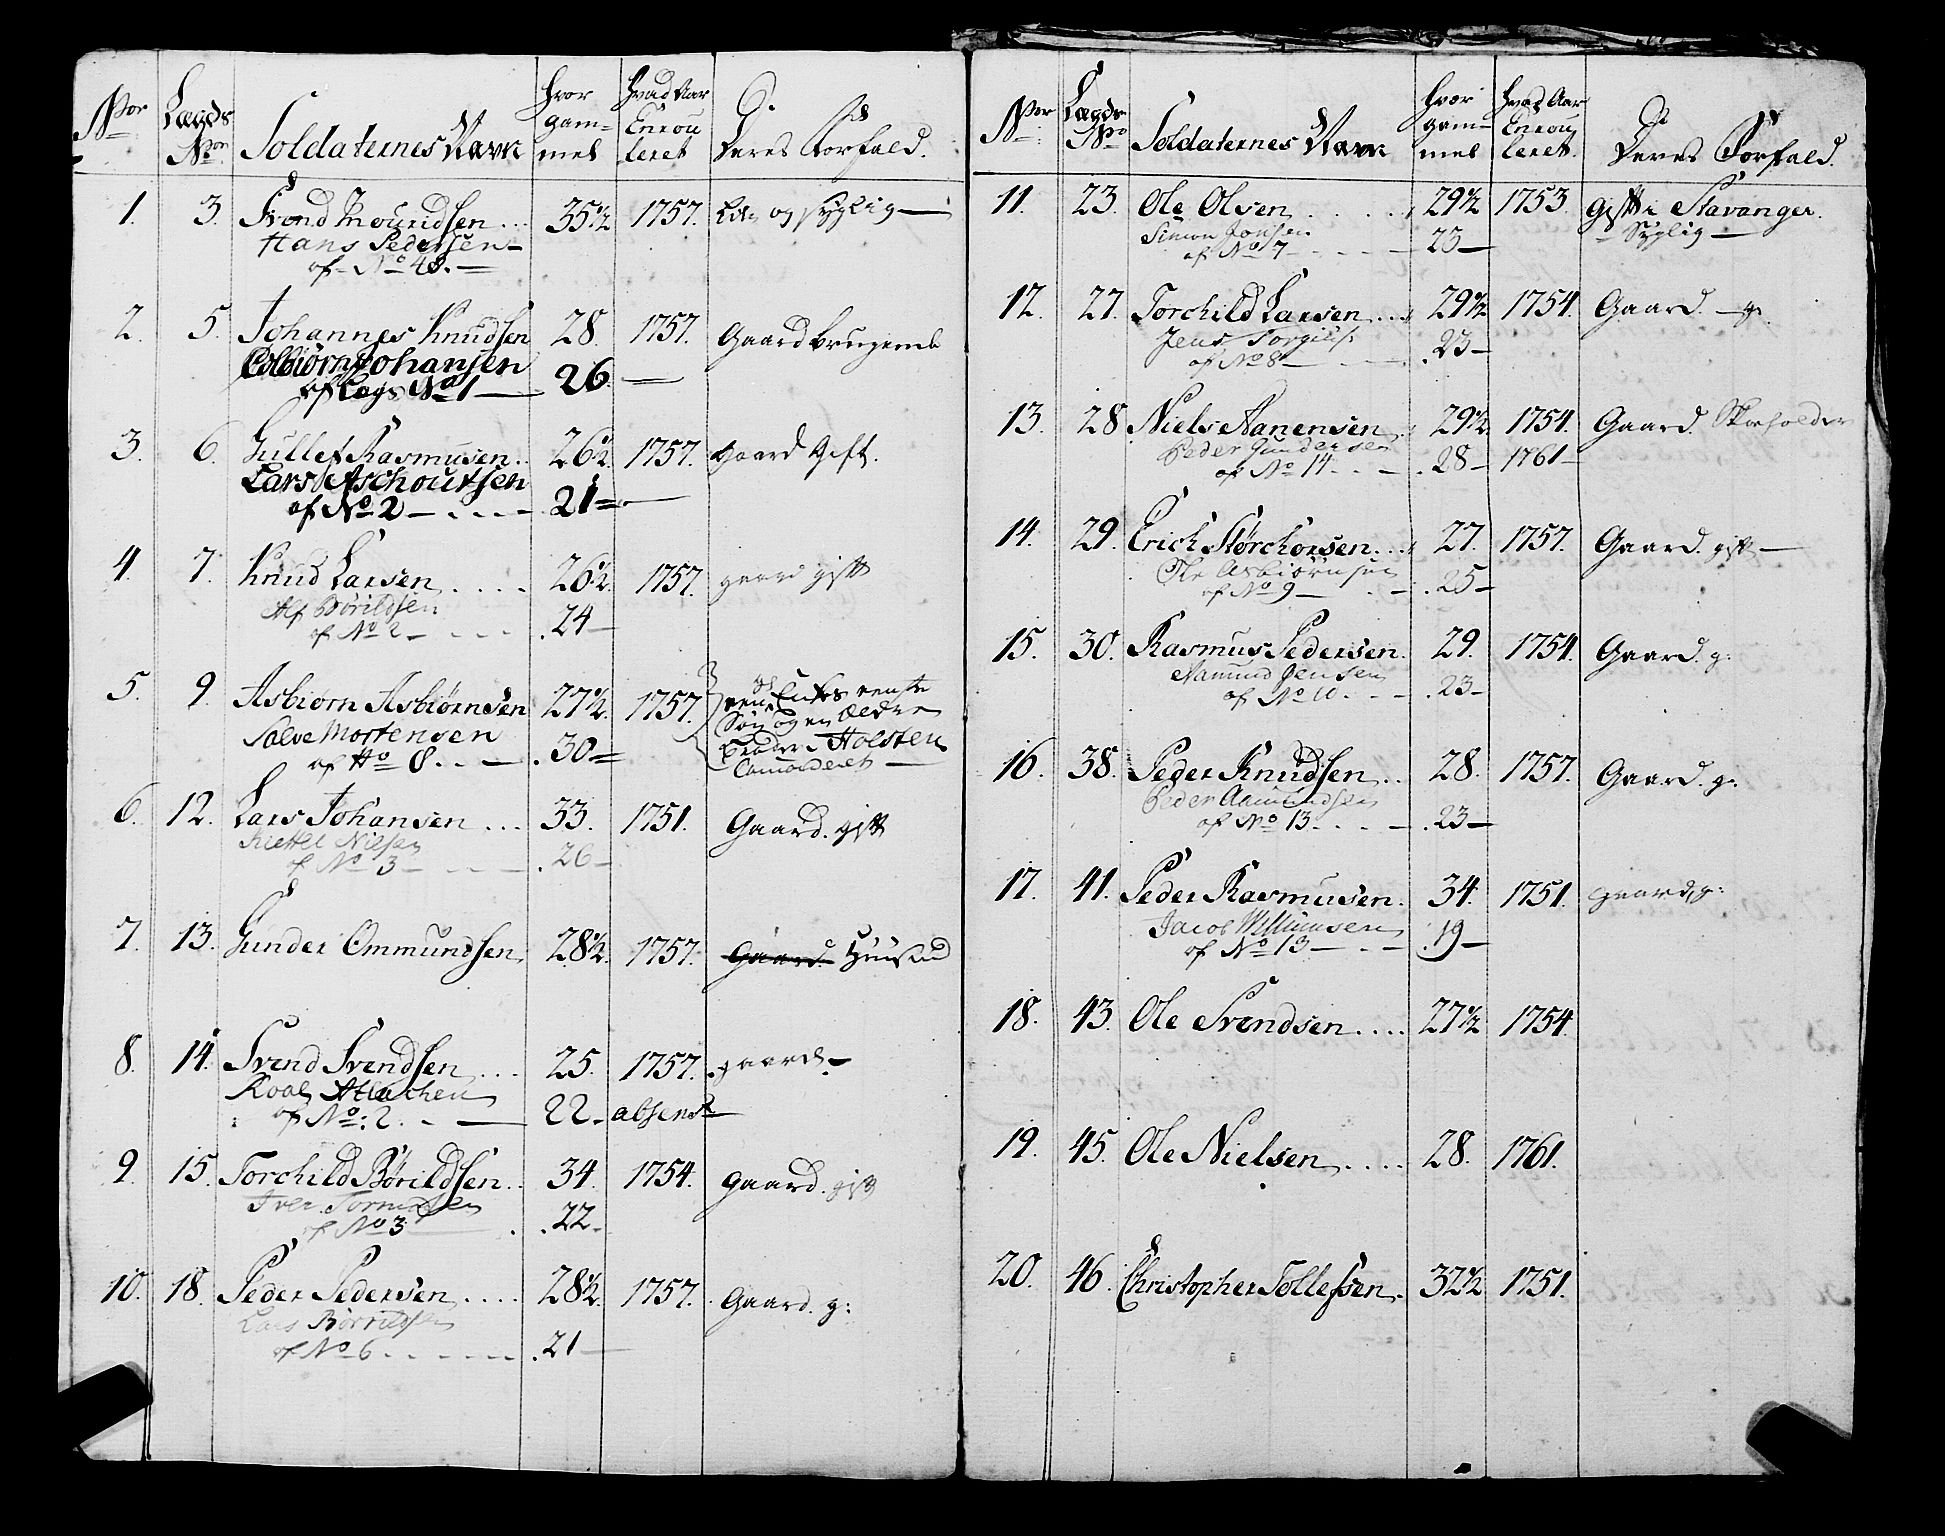 Nor Lægds Nor Soldaternes Navn hvor gammel hvad Aar Enroulleret Deres Forfald.
1. 3. Trond Mouridsen... 35½ 1757. Liden og Syglig —
Hans Pedersen —
af — No 48. —
2. 5. Johannes Knudsen 28. 1757. Gaard brugende
Esbiørn Johansen
af Legs No 1 — 26. —
3. 6. Gullef Rasmusen.. 26½. 1757. Gaard Gift.
Lars Aschoutsen
af No 2 — . — . — . 21 = —
4. 7. Knud Larsen..... 26½. 1757. gaard gift
Alf Børildsen
af No 2 — . — . — . 24 —
5. 9. Asbiørn Asbiørnsen 27½. 1757. Enkes eeneste
Søn og en Ældre
Salve Mortensen
af No 8. . — . 30 = Broder i Holsten
Comanderet —
6. 12. Lars Johansen... 33. 1751. Gaard. gift
Kiettel Nielsen
af No 3 — . — . — . 26 —
7. 13. Gunder Ommundsen 28½. 1757. Gaard Huusmd
8. 14. Svend Svendsen... 25. 1757. gaard. —
Roal
af No: 2. — . — 22 — absent —
9. 15. Torchild Børildsen.. 34. 1754. Gaard. gift
Iver
af No 3 . 22 —
10. 18. Peder Pedersen.... 28½. 1757. Gaard. g:
Lars Børrildsen
af No 6 . . . . . . . 21 —
Nor Lægds No Soldaternes Navn hvor gammel hvad Aar Enroulleret. Deres Forfald.
11. 23. Ole Olsen...... 29½ 1753. Gift i Stavanger.
Simon Jonsen — Syglig —
af No 7 — . — . — 23 —
12. 27. Torchild Larsen... 29½ 1754. Gaard. — g.
Jens Torgilss:
af No 8 — . — . 23 —
13. 28 Niels Aanensen.. 29½. 1754. Gaard.
Peder Gundersen
af No 14. — . — . 28 — 1761 —
14. 29. Erich Størchorsen... 27. 1757. Gaard. gift —
Ole Asbiørnsen
af No 9 — . — . 25 —
15. 30. Rasmus Pedersen. 29. 1754. Gaard. g:
Aamund Jensen
af No 10. — . — . 23 —
16. 38. Peder Knudsen.. 28. 1757. Gaard. g:
Peder Aamundsen
af No 13. — . — . 23 —
17. 41. Peder Rasmusen. 34. 1751. gaard, g:
Jacob Willumsen
af No 13 — . — . 19 —
18. 43. Ole Svendsen.... 27½ 1754.
19. 45. Ole Nielsen.... 28. 1761.
20. 46. Christopher Tollefsen. 32½ 1751.